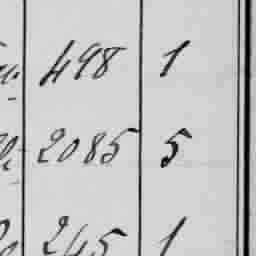 498 1
2085 5
245 1